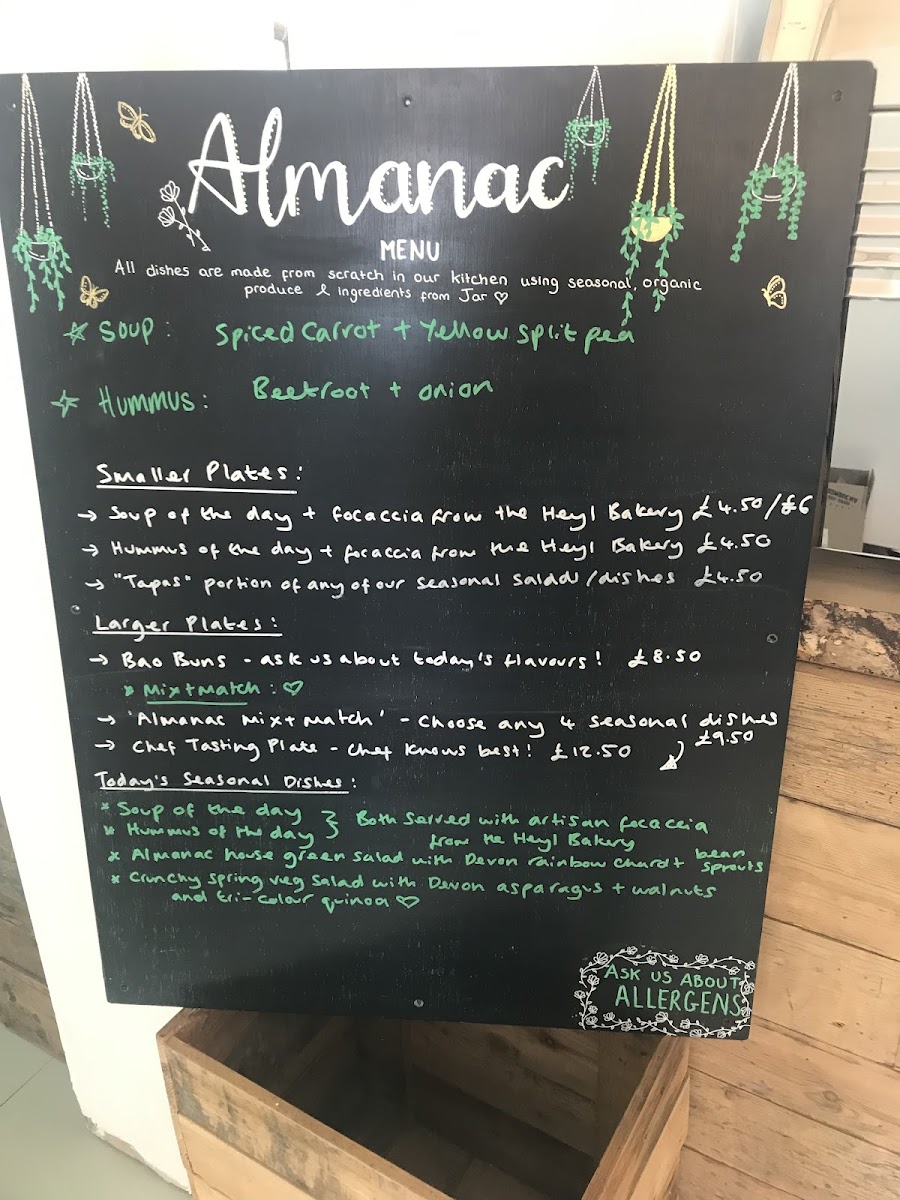 Almanac
MENU
All dishes are made from scratch in our kitchen using seasonal, organic
produce & ingredients from Jar ♡
☆ Soup: Spiced Carrot + Yellow split pea
☆ Hummus: Beetroot + onion
Smaller Plates:
→ Soup of the day + focaccia from the Heyl Bakery £4.50/£6
→ Hummus of the day + focaccia from the Heyl Bakery £4.50
→ "Tapas" portion of any of our seasonal salads/dishes £4.50
Larger Plates:
→ Bao Buns - ask us about today's flavours! £8.50
* Mix + Match: ♡
→ 'Almanac Mix + Match' - Choose any 4 seasonal dishes
£9.50
→ Chef Tasting Plate - Chef knows best! £12.50
Today's Seasonal Dishes:
* Soup of the day } Both served with artisan focaccia
* Hummus of the day } from the Heyl Bakery
* Almanac house green salad with Devon rainbow chard + bean
sprouts
* Crunchy spring veg salad with Devon asparagus + walnuts
and tri-colour quinoa ♡
ASK US ABOUT
ALLERGENS